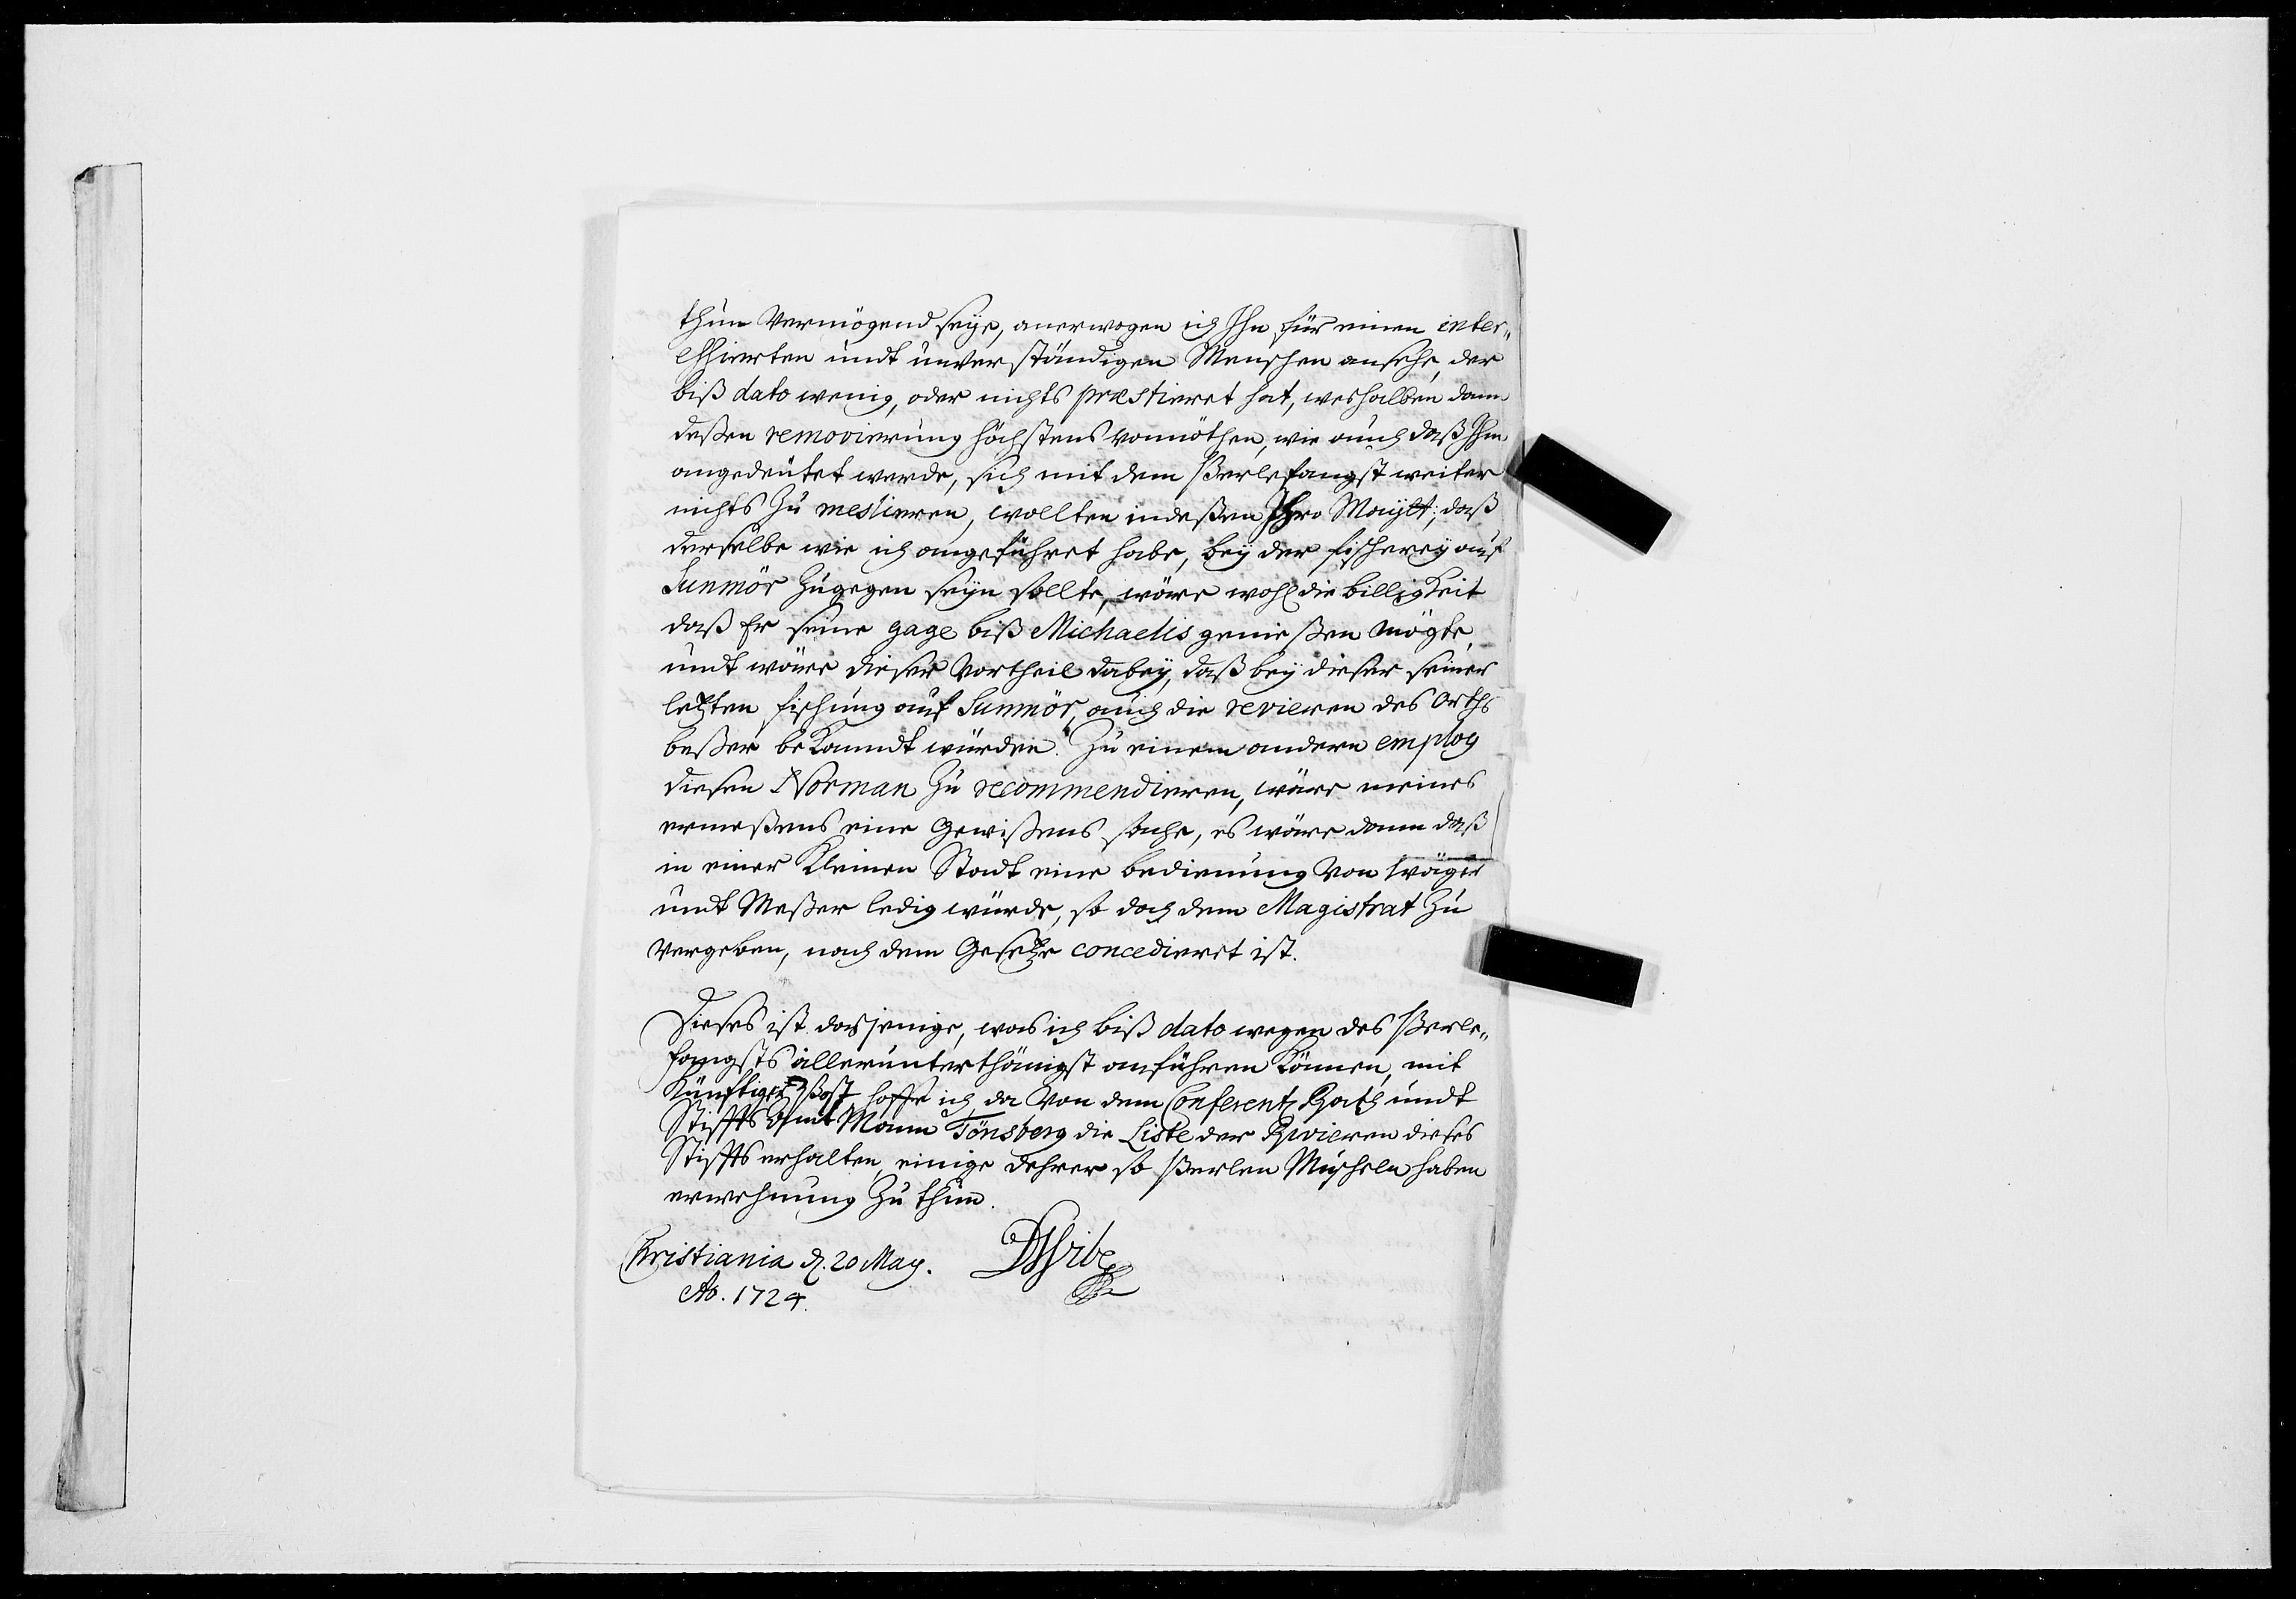 thun vermögend seye, anerwogen ich Ihn für einen inter„
essierten undt unverständigen Menschen ansehe, der
biß dato wenig, oder nichts præstieret hat, weshalben dann
deßen removierung höchstens vonnöthen, wie auch daß Ihm
angedeutet werde, sich mit dem Perlefangst weiter
nichts Zu meslieren, wollten indeßen Ihro Maytt; daß
derselbe wie ich angeführet habe, bey der fischerey auf
Sunmör Zugegen seyn sollte, wäre wohl die billigkeit
daß Er seine gage biß Michaelis genießen mögte,
undt wäre dieser Vortheil dabey, daß bey dieser seiner
letzten fischung auf Sunmör, auch die revieren des Orths
beßer bekanndt würden. Zu einem andern employ
diesen Norman Zu recommendieren, wäre meines
ermeßens eine Gewißens sache, es wäre dann daß
in einer Kleinen Stadt eine bedienung von wäger
undt Meßer ledig würde, so doch dem Magistrat Zu
vergeben, nach dem Gesetze concedieret ist.
Dieses ist dasjenige, was ich biß dato wegen des Perle„
fangsts allerunterthänigst anführen Können, mit
Künftiger Post hoffe ich, da von dem Conferentz Rath undt
Stiffts Amt Mann Tönsberg die Liste der Rivieren dieses
Stiffts erhalten, einige dehrer so Perlen Muscheln haben
erwehnung Zu thun.
Christiania d. 20 May.
DWibe
Ao. 1724.